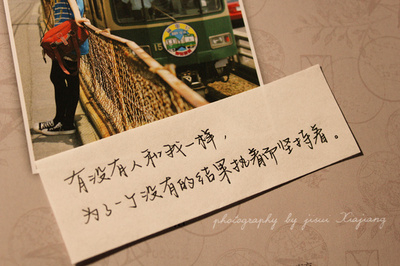 有没有人和我一样,
为了一个没有的结果执着而坚持着。
photography by jiuu Xiajiang